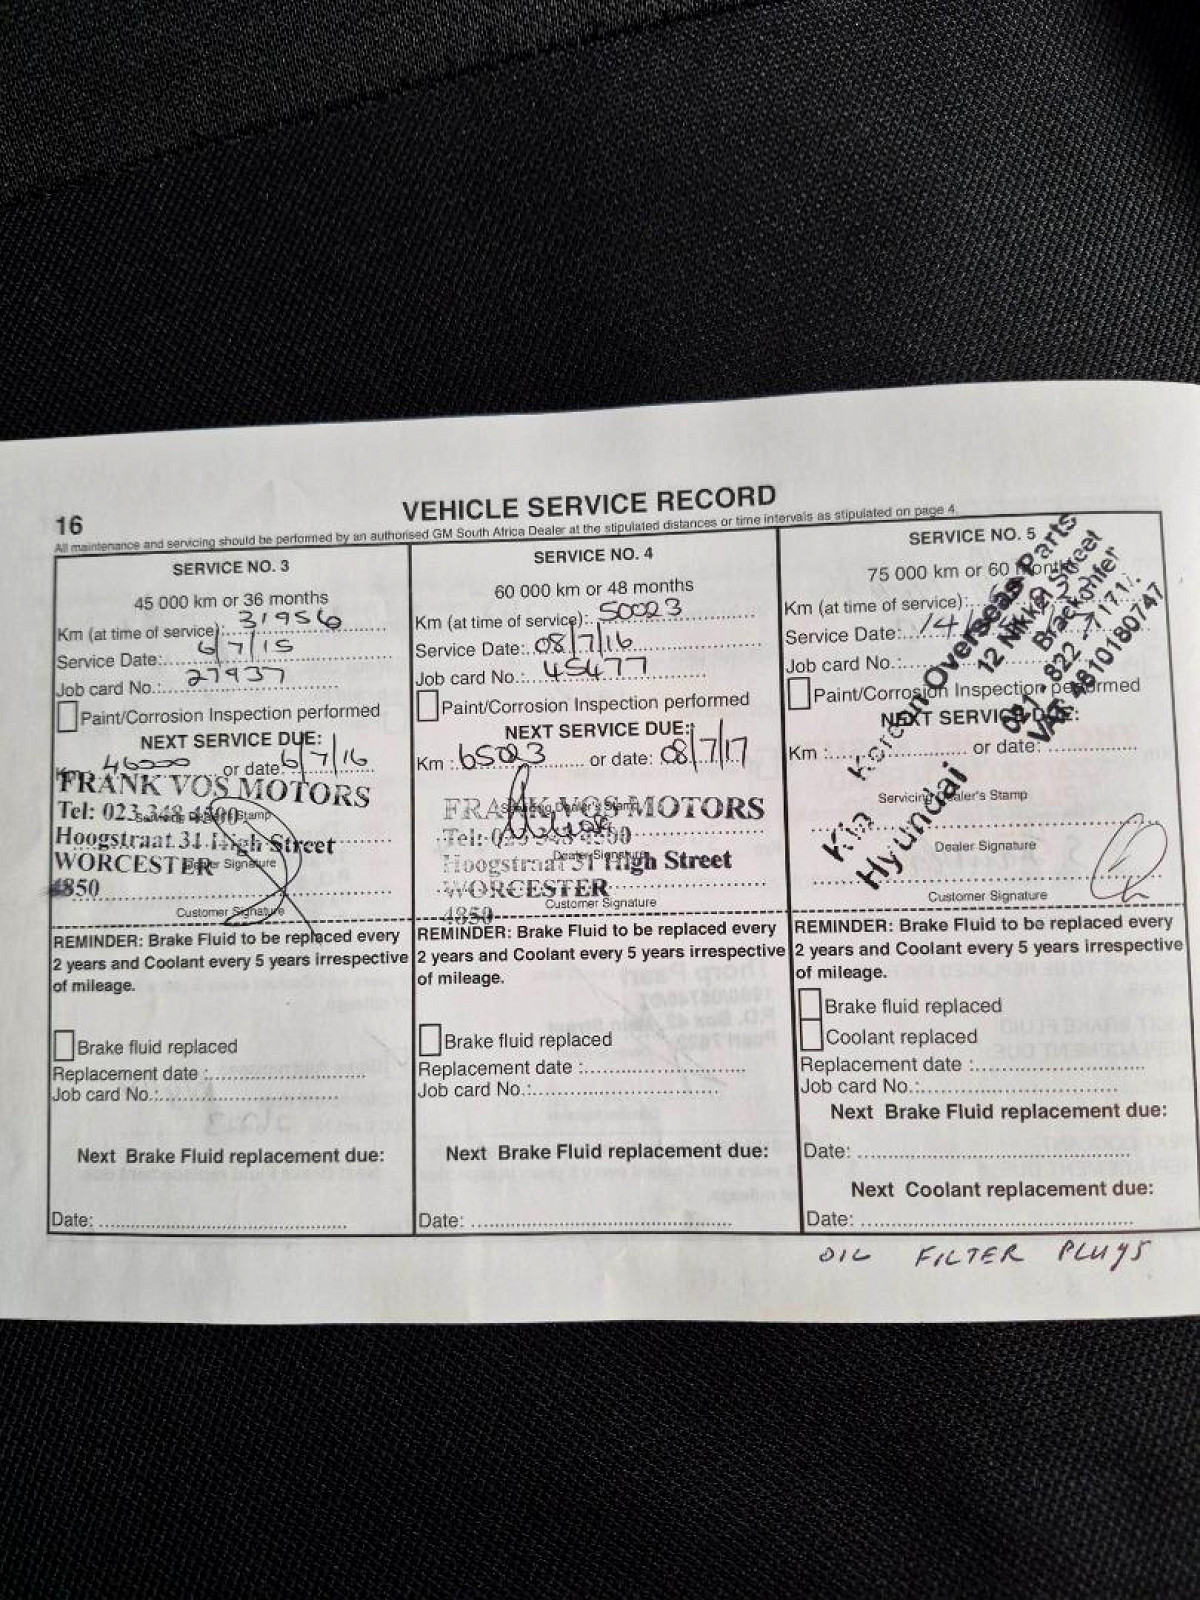 16
VEHICLE SERVICE RECORD
All maintenance and servicing should be performed by an authorised GM South Africa Dealer at the stipulated distances or time intervals as stipulated on page 4.
SERVICE NO. 3
45 000 km or 36 months
Km (at time of service): 31956
Service Date: 6/7/15
Job card No.: 27937
Paint/Corrosion Inspection performed
NEXT SERVICE DUE:
46000 or date 6/7/16
FRANK VOS MOTORS
Tel: 023 348 4500
Servicing Dealer's Stamp
Hoogstraat 31 High Street
WORCESTER
Dealer Signature
4850
Customer Signature
REMINDER: Brake Fluid to be replaced every
2 years and Coolant every 5 years irrespective
of mileage.
Brake fluid replaced
Replacement date :
Job card No.:
Next Brake Fluid replacement due:
Date:
SERVICE NO. 4
60 000 km or 48 months
Km (at time of service): 50023
Service Date: 08/7/16
Job card No.: 45477
Paint/Corrosion Inspection performed
NEXT SERVICE DUE:
Km : 65023 or date: 08/7/17
FRANK VOS MOTORS
Servicing Dealer's Stamp
Tel: 023 348 4500
Hoogstraat 31 High Street
Dealer Signature
WORCESTER
Customer Signature
4850
REMINDER: Brake Fluid to be replaced every
2 years and Coolant every 5 years irrespective
of mileage.
Brake fluid replaced
Replacement date :
Job card No.:
Next Brake Fluid replacement due:
Date:
SERVICE NO. 5
75 000 km or 60 months
Km (at time of service):
Service Date: 14
Job card No.:
Paint/Corrosion Inspection performed
NEXT SERVICE DUE:
Km : or date:
Servicing Dealer's Stamp
Dealer Signature
Customer Signature
Kia Korean Overseas Parts
Hyundai 12 Nikkel Street
Brackenfer
021 822 7171/
VAT 4810180747
REMINDER: Brake Fluid to be replaced every
2 years and Coolant every 5 years irrespective
of mileage.
Brake fluid replaced
Coolant replaced
Replacement date :
Job card No.:
Next Brake Fluid replacement due:
Date:
Next Coolant replacement due:
Date:
OIL FILTER PLUGS